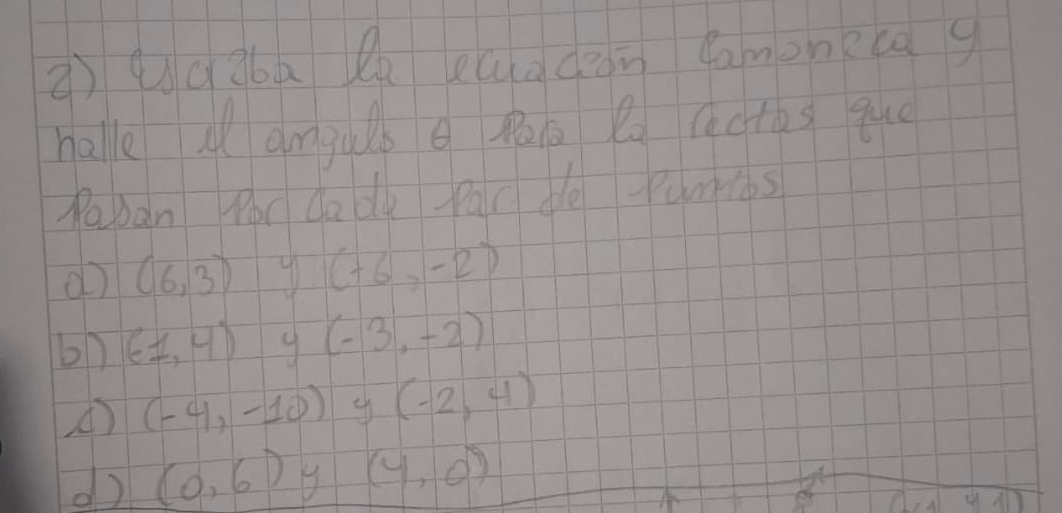 2) Escriba la ecuación Canonica y
halle el angulo θ Para la rectas que
Pasan Por Cada Par de Puntos
a) (6,3) y (-6,-2)
b) (-1,4) y (-3,-2)
c) (-4,-10) y (-2,4)
d) (0,6) y (4,0)